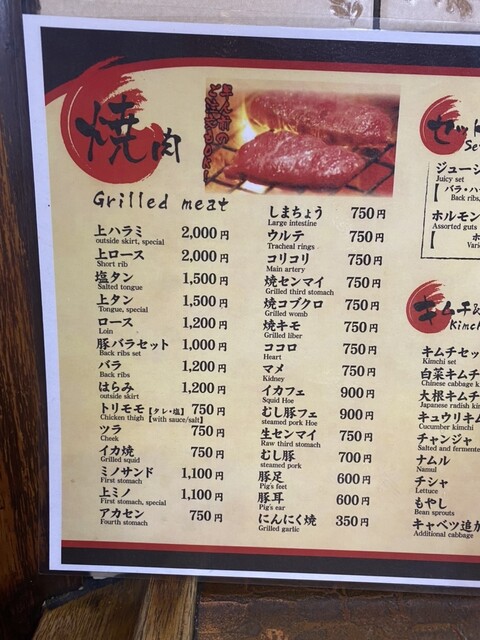 焼肉
Grilled meat
上ハラミ 2,000円
outside skirt, special
上ロース 2,000円
Short rib
塩タン 1,500円
Salted tongue
上タン 1,500円
Tongue, special
ロース 1,200円
Loin
豚バラセット 1,000円
Back ribs set
バラ 1,200円
Back ribs
はらみ 1,200円
outside skirt
トリモモ【タレ・塩】 750円
Chicken thigh【with sauce/salt】
ツラ 750円
Cheek
イカ焼 750円
Grilled squid
ミノサンド 1,100円
First stomach
上ミノ 1,100円
First stomach, special
アカセン 750円
Fourth stomach
しまちょう 750円
Large intestine
ウルテ 750円
Tracheal rings
コリコリ 750円
Main artery
焼センマイ 750円
Grilled third stomach
焼コブクロ 750円
Grilled womb
焼キモ 750円
Grilled liber
ココロ 750円
Heart
マメ 750円
Kidney
イカフェ 900円
Squid Hoe
むし豚フェ 900円
steamed pork Hoe
生センマイ 750円
Raw third stomach
むし豚 700円
steamed pork
豚足 600円
Pig's feet
豚耳 600円
Pig's ear
にんにく焼 350円
Grilled garlic
セット
Se
ジューシ
Juicy set
【バラ・ハ
Back ribs,
ホルモン
Assorted guts
【 ホ
Vari
キムチ&
Kimch
キムチセッ
Kimchi set
白菜キムチ
Chinese cabbage k
大根キムチ
Japanese radish kim
キュウリキム
Cucumber kimchi
チャンジャ
Salted and fermente
ナムル
Namul
チシャ
Lettuce
もやし
Bean sprouts
キャベツ追加
Additional cabbage